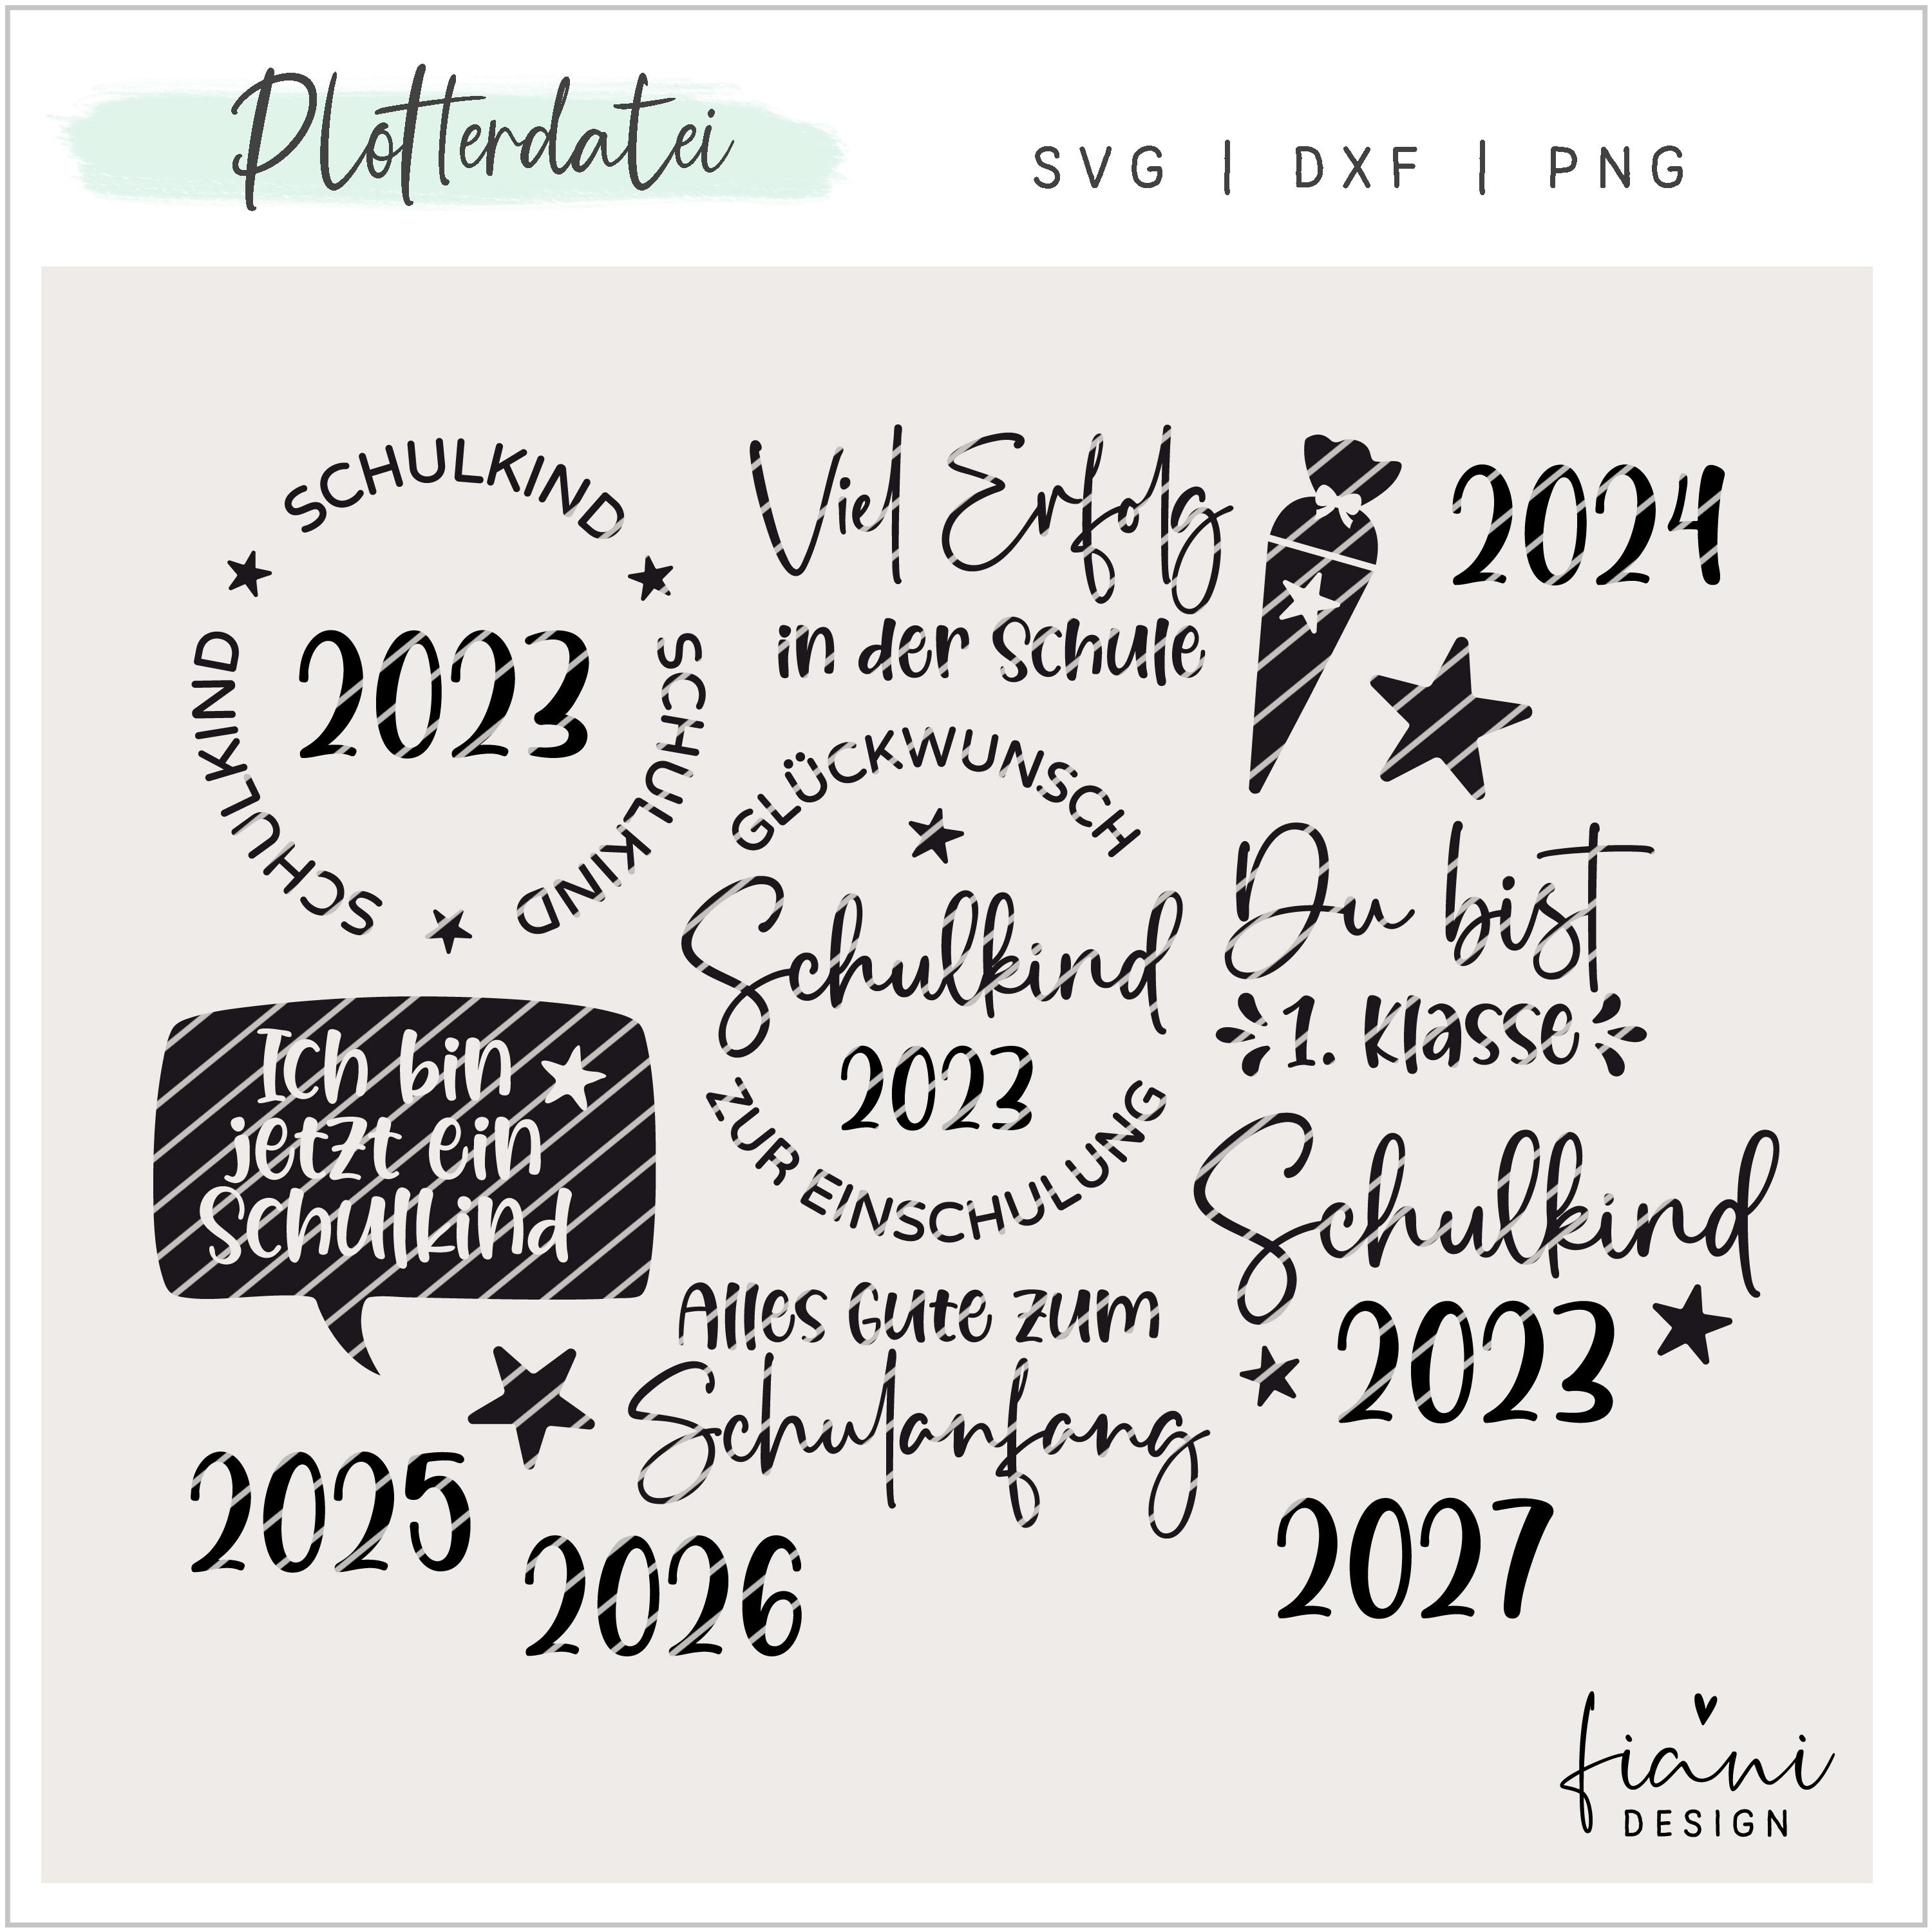 Plotterdatei
SVG | DXF | PNG
SCHULKIND
SCHULKIND
SCHULKIND
2023
Viel Erfolg
in der Schule
2024
GLÜCKWUNSCH
Schulkind
2023
ZUR EINSCHULUNG
Du bist
1. Klasse
Ich bin
jetzt ein
Schulkind
Schulkind
2023
Alles Gute zum
Schulanfang
2025
2026
2027
fiani
DESIGN